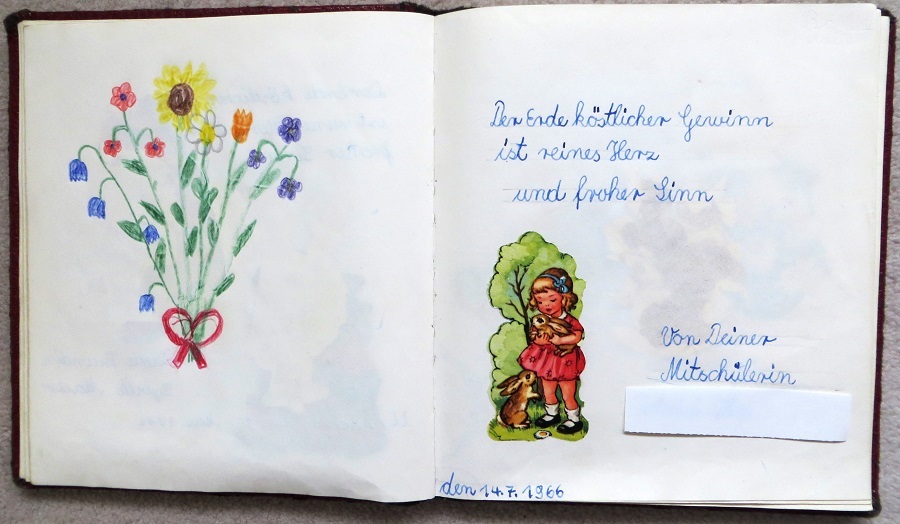 Der Erde köstlicher Gewinn
ist reines Herz
und froher Sinn
Von Deiner
Mitschülerin
den 14.7.1966